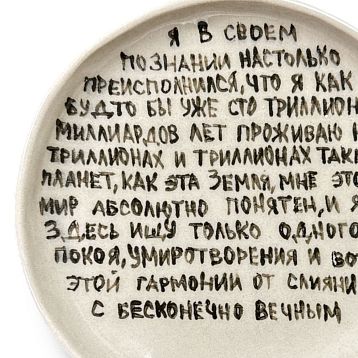 Я В СВОЕМ
ПОЗНАНИИ НАСТОЛЬКО
ПРЕИСПОЛНИЛСЯ, ЧТО Я КАК
БУДТО БЫ УЖЕ СТО ТРИЛЛИОН
МИЛЛИАРДОВ ЛЕТ ПРОЖИВАЮ
ТРИЛЛИОНАХ И ТРИЛЛИОНАХ ТАКИ
ПЛАНЕТ, КАК ЭТА ЗЕМЛЯ, МНЕ ЭТО
МИР АБСОЛЮТНО ПОНЯТЕН, И Я
ЗДЕСЬ ИЩУ ТОЛЬКО ОДНОГО
ПОКОЯ, УМИРОТВОРЕНИЯ И ВО
ЭТОЙ ГАРМОНИИ ОТ СЛИЯНИ
С БЕСКОНЕЧНО ВЕЧНЫМ